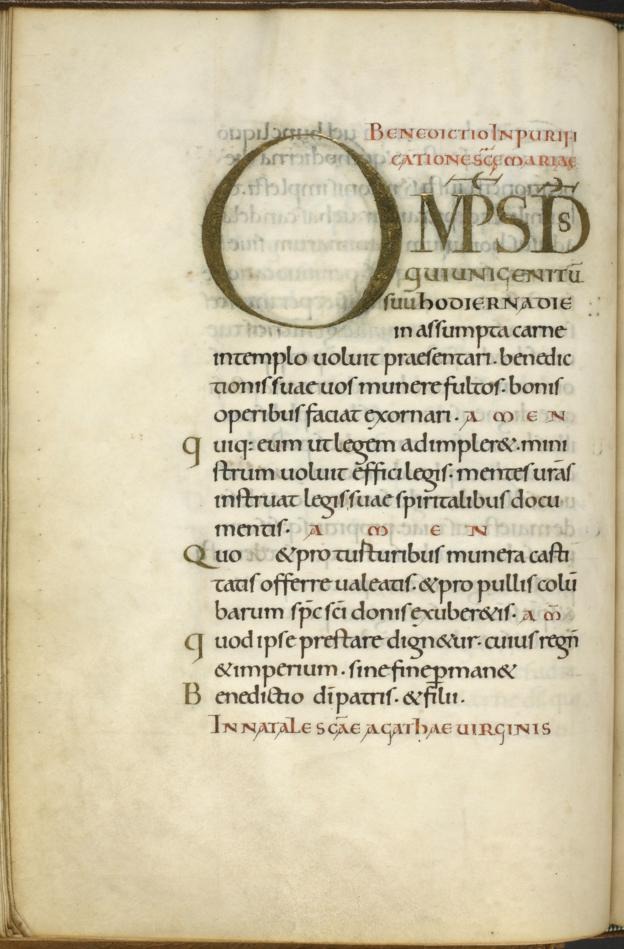 BENEDICTIO IN PURIFI
CATIONE SCĒ MARIAE
OMPS DS
QUI UNIGENITŪ
suū HODIERNA DIE
in assumpta carne
in templo uoluit praesentari. benedic
tionis suae uos munere fultos. bonis
operibus faciat exornari. AMEN
quiq: eum ut legem adimpler&. mini
strum uoluit effici legis. mentes urās
instruat legis suae spiritalibus docu
mentis. AMEN
Quo &pro turturibus munera casti
tatis offerre ualeatis. &pro pullis colū
barum spc sci donis exuber&is. AM̄
quod ipse prestare dign&ur. cuius regn̄
&imperium. sine fine pman&
Benedictio di patris. & filii.
IN NATALE SCAE AGATHAE UIRGINIS